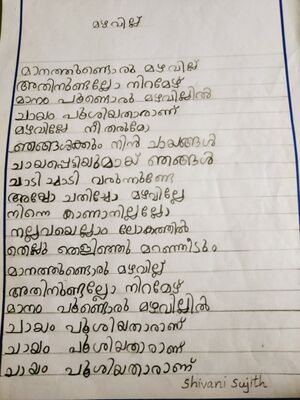 മഴവില്ല്
മാനത്തുണ്ടൊരു മഴവില്ല്
അതിനുണ്ടല്ലോ നിറമേഴ്
മാനം പൂണ്ടൊരു മഴവില്ലിൽ
ചായം പൂശിയതാരാണ്
മഴവില്ലേ നീ തരുമോ
ഞങ്ങൾക്കും നിൻ ചായങ്ങൾ
ചായപ്പെട്ടിയുമായ് ഞങ്ങൾ
ചാടി ചാടി വരുന്നുണ്ടേ
അയ്യോ ചതിച്ചോ മഴവില്ലേ
നിന്നെ താണാനില്ലല്ലോ
നല്ലവയെല്ലാം ലോകത്തിൽ
തെല്ലു തെളിഞ്ഞു മറഞ്ഞീടും
മാനത്തുണ്ടൊരു മഴവില്ല്
അതിനുണ്ടല്ലോ നിറമേഴ്
മാനം പൂണ്ടൊരു മഴവില്ലിൽ
ചായം പൂശിയതാരാണ്
ചായം പൂശിയതാരാണ്
ചായം പൂശിയതാരാണ്
Shivani Sujith